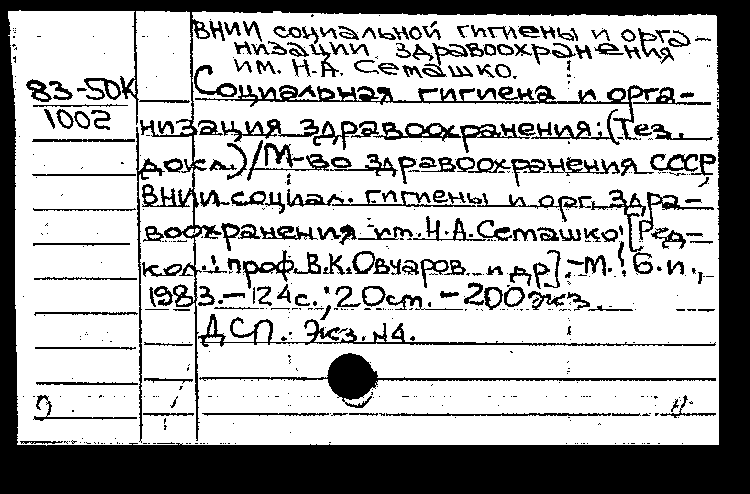 ВНИИ социальной гигиены и орга-
низации здравоохранения
им. Н.А. Семашко.
83-50К
Социальная гигиена и орга-
1002
низация здравоохранения: (Тез.
докл.) / М-во здравоохранения СССР,
ВНИИ социал. гигиены и орг. здра-
воохранения им. Н.А. Семашко; [Ред-
кол.: проф. В.К. Овчаров и др]. - М.: Б.и.,
1983. - 124 с.; 20 см. - 200 экз.
ДСП. Экз. N4.